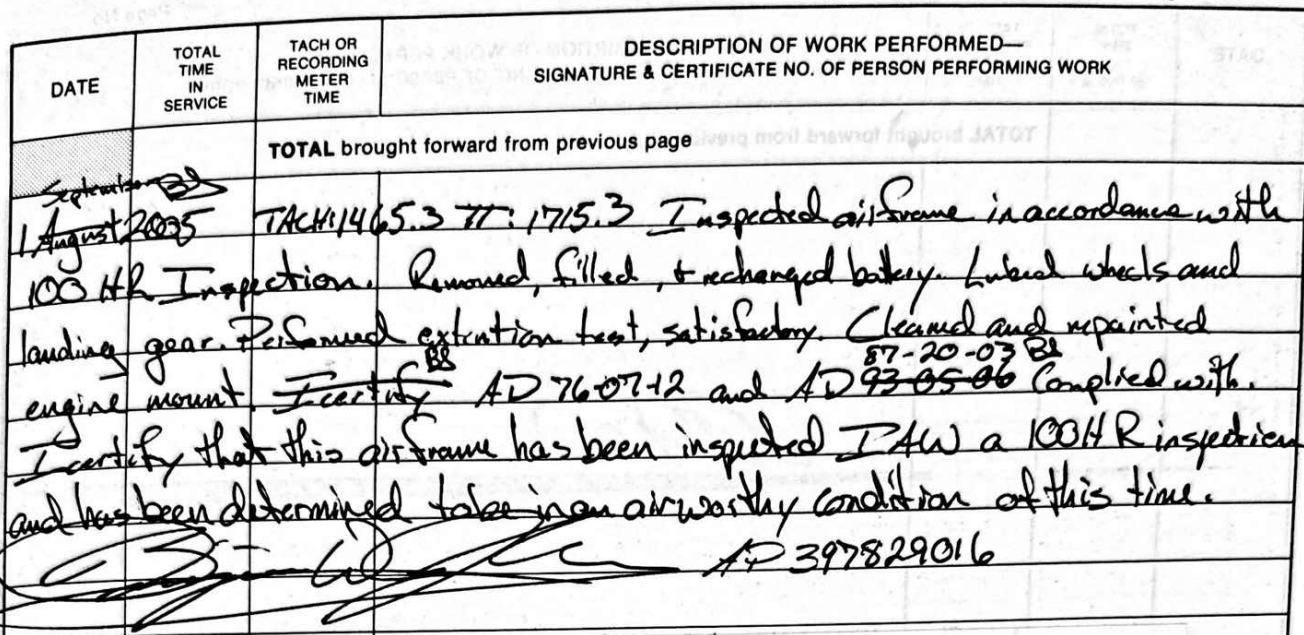 DATE
TOTAL
TIME
IN
SERVICE
TACH OR
RECORDING
METER
TIME
DESCRIPTION OF WORK PERFORMED—
SIGNATURE & CERTIFICATE NO. OF PERSON PERFORMING WORK
TOTAL brought forward from previous page
September BL
1 August 2005 TACH: 1465.3 TT: 1715.3 Inspected airframe in accordance with
100 HR Inspection. Removed, filled, + rechanged battery. Lubed wheels and
landing gear. Performed extention test, satisfactory. Cleaned and repainted
BL 87-20-03 BL
engine mount. I certify AD 76-07-12 and AD 93-05-06 Complied with.
I certify that this airframe has been inspected IAW a 100HR inspection
and has been determined to be in an airworthy condition at this time.
AP 397829016